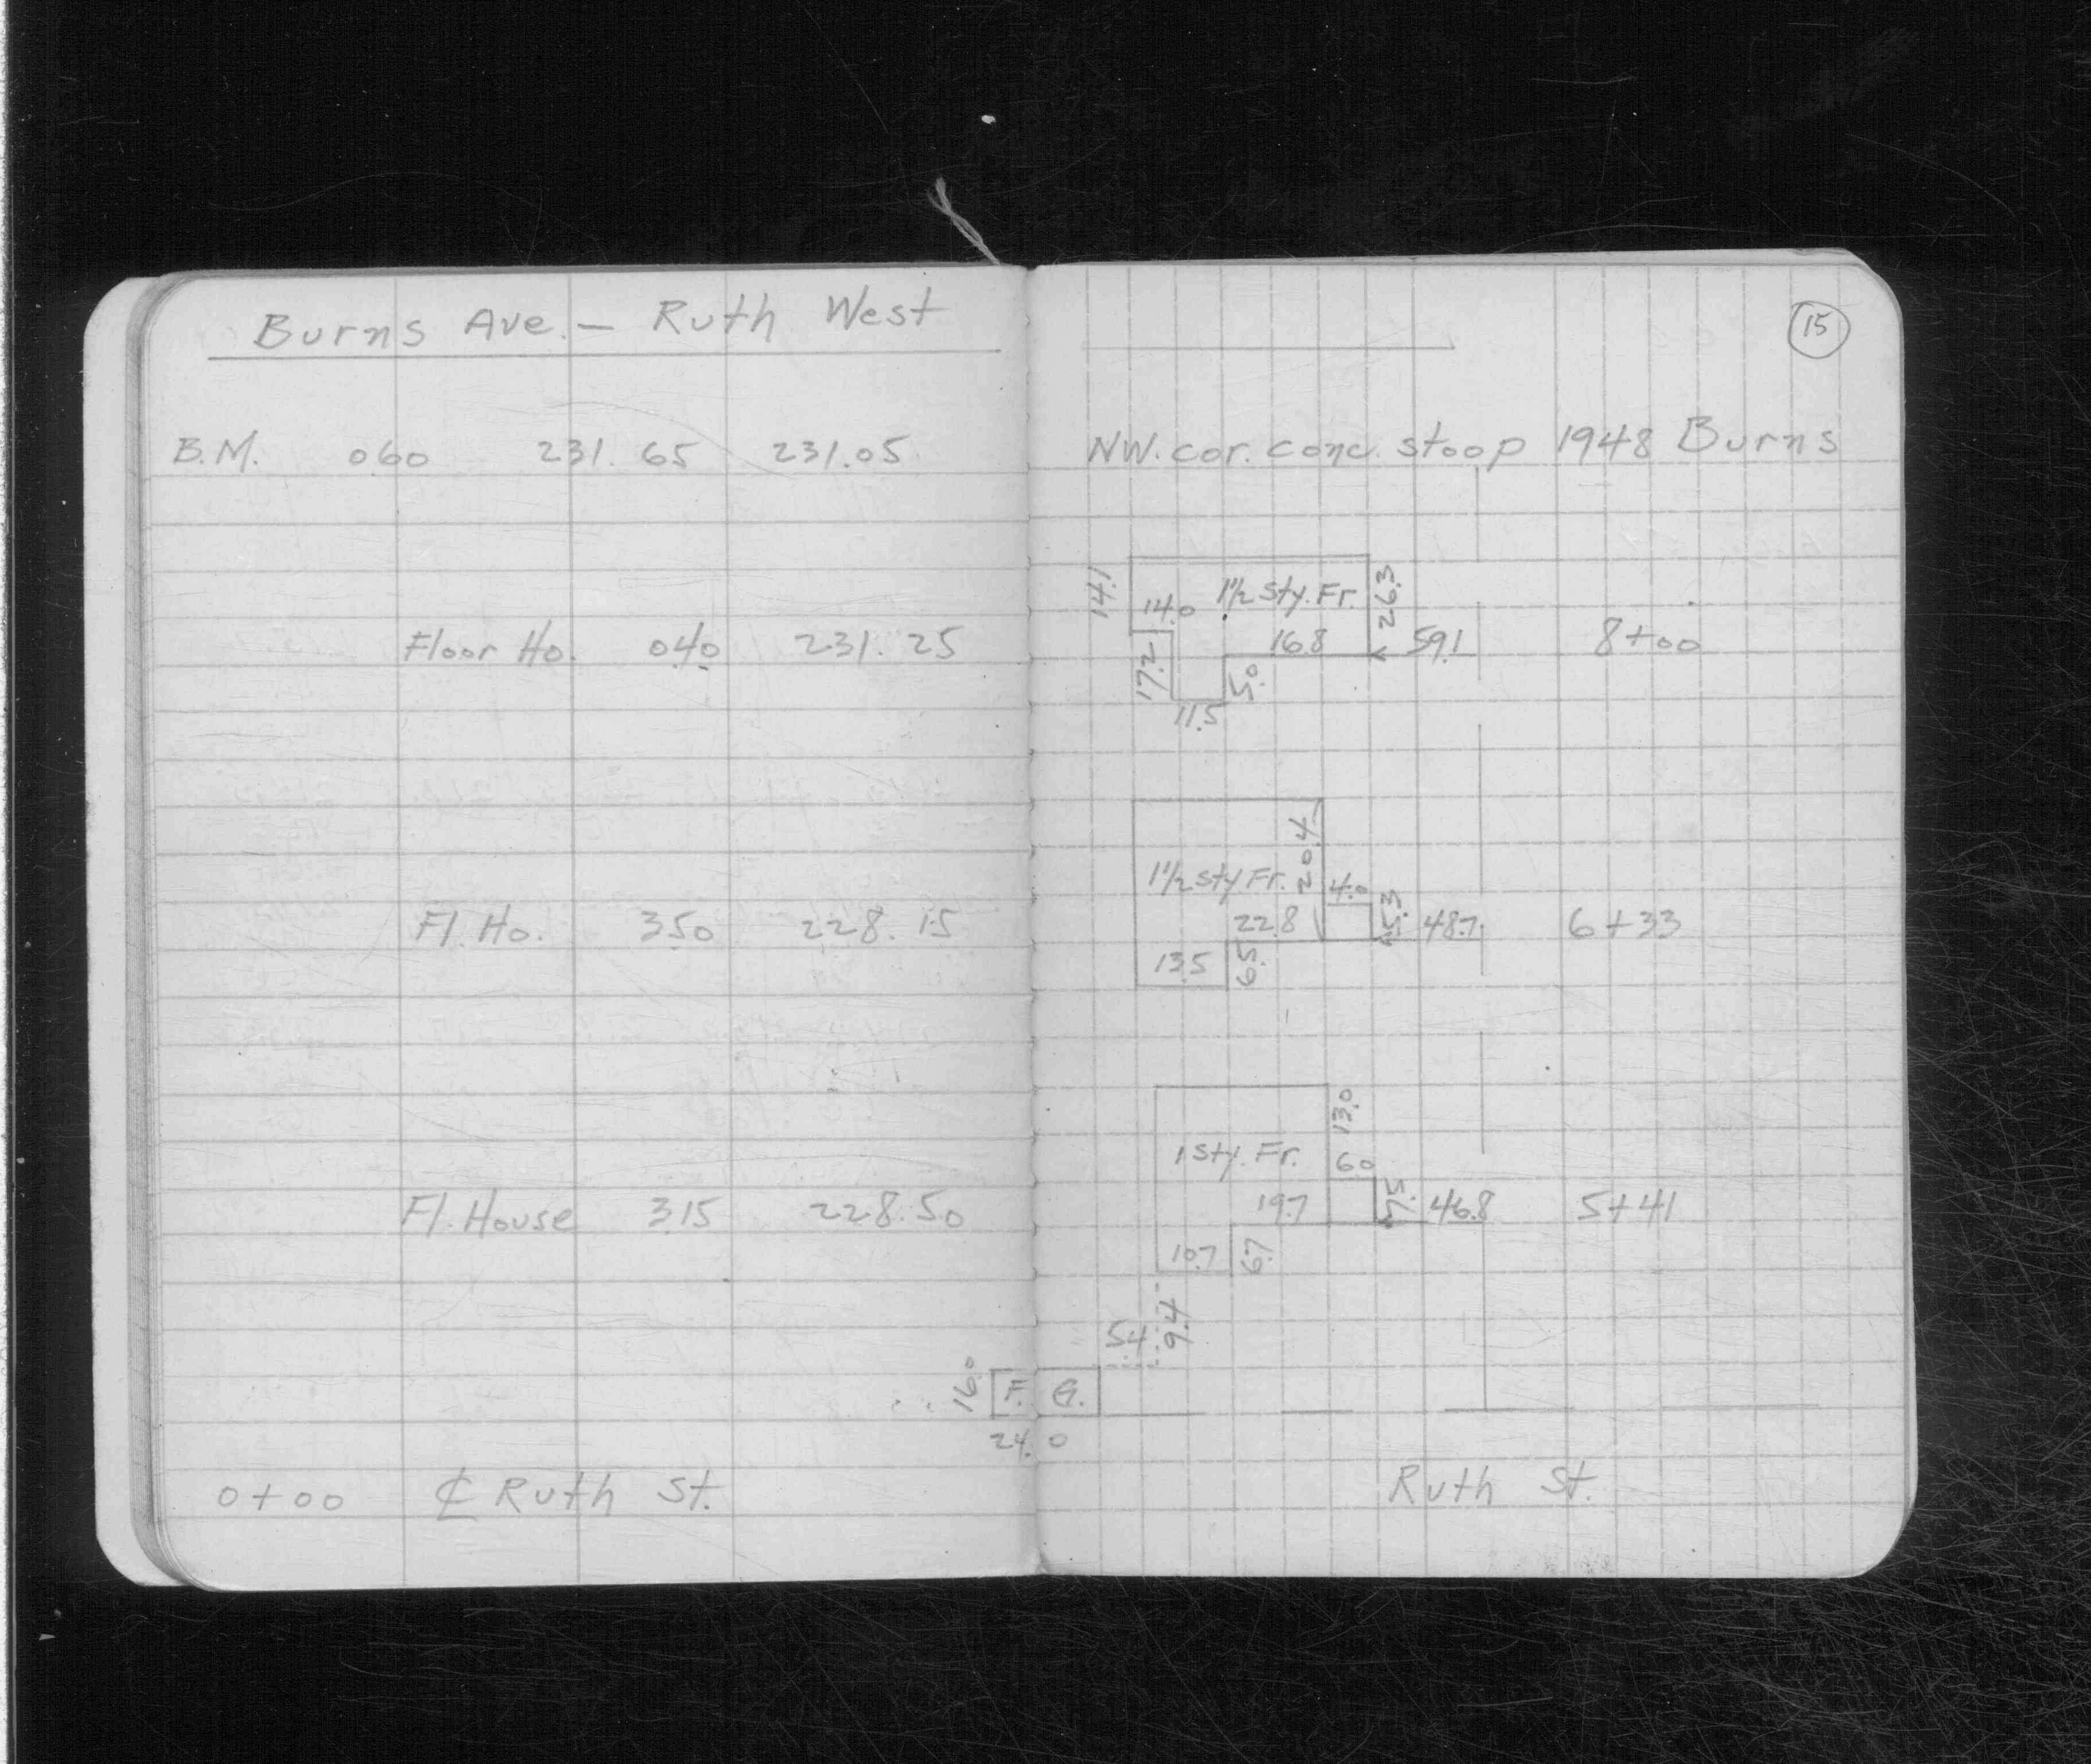 Burns Ave. — Ruth West
B.M. 060 231.65 231.05
Floor Ho. 040 231.25
Fl. Ho. 350 228.15
Fl. House 315 228.50
0+00 ℄ Ruth St.
15
NW. cor. conc. stoop 1948 Burns
14.1
14.0
1½ Sty. Fr.
26.3
16.8
59.1
8+00
17.2
5.0
11.5
20.4
1½ Sty Fr.
4.0
22.8
5.3
48.7
6+33
13.5
6.5
13.0
1 Sty. Fr.
6.0
19.7
7.5
46.8
5+41
10.7
6.7
5.4
9.4
16.0
F. G.
24.0
Ruth St.